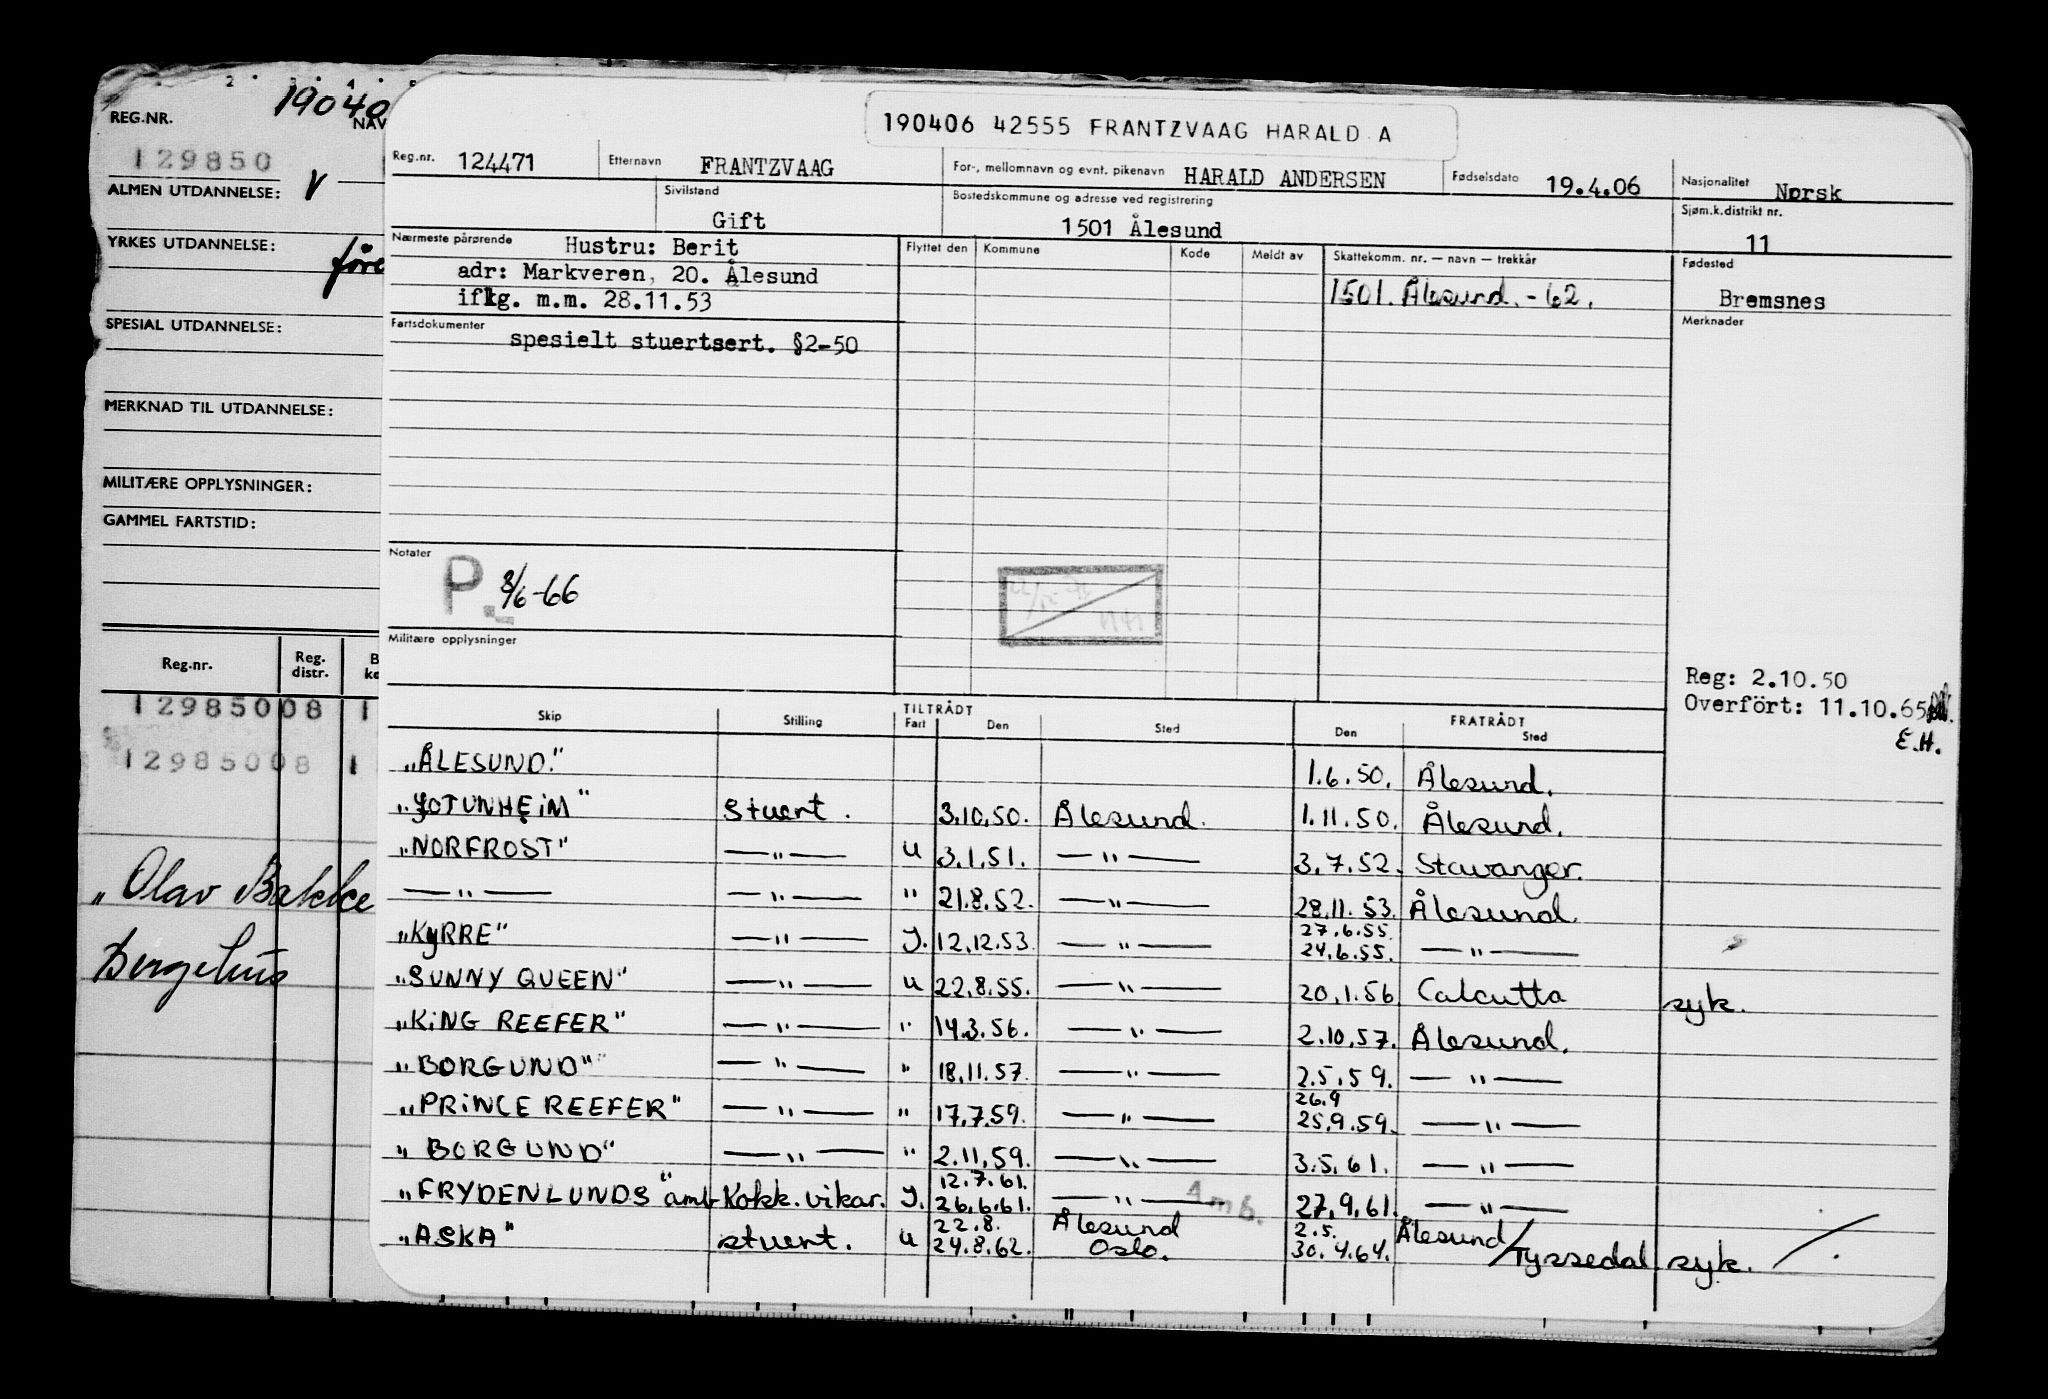 2 3 4
190406 42555 FRANTZVAAG HARALD A
REG.NR. 19040 NAV
129850
ALMEN UTDANNELSE: V
YRKES UTDANNELSE: føre
SPESIAL UTDANNELSE:
MERKNAD TIL UTDANNELSE:
MILITÆRE OPPLYSNINGER:
GAMMEL FARTSTID:
Reg.nr. Reg. distr. B
12985008 1
12985008 1
„Olav Bakke
Bergehus
Reg.nr. 124471 Etternavn FRANTZVAAG For-, mellomnavn og evnt. pikenavn HARALD ANDERSEN Fødselsdato 19.4.06 Nasjonalitet Norsk
Sivilstand Gift Bostedskommune og adresse ved registrering 1501 Ålesund Sjøm.k.distrikt nr. 11
Nærmeste pårørende Hustru: Berit Flyttet den Kommune Kode Meldt av Skattekomm. nr. — navn — trekkår Fødested
adr: Markveren, 20. Ålesund 1501. Ålesund. -62. Bremsnes
iflg. m.m. 28.11.53
Fartsdokumenter Merknader
spesielt stuertsert. §2-50
Notater
P. 3/6-66
Militære opplysninger
Reg: 2.10.50
Overfört: 11.10.65
E.H.
TILTRÅDT FRATRÅDT
Skip Stilling Fart Den Sted Den Sted
„ÅLESUND." 1.6.50. Ålesund.
„JOTUNHEIM" Stuert. 3.10.50. Ålesund. 1.11.50. Ålesund.
„NORFROST" —„— u 3.1.51. —„— 3.7.52. Stavanger.
—„— —„— " 21.8.52. —„— 28.11.53. Ålesund.
27.6.55.
„KYRRE" —„— J. 12.12.53. —„— 24.6.55. —„—
„SUNNY QUEEN" —„— u 22.8.55. —„— 20.1.56 Calcutta syk.
„KING REEFER" —„— " 14.3.56. —„— 2.10.57. Ålesund.
„BORGUND" —„— " 18.11.57. —„— 2.5.59. —„—
26.9
„PRINCE REEFER" —„— " 17.7.59. —„— 25.9.59. —„—
„BORGUND" —„— " 2.11.59. —„— 3.5.61. —„—
12.7.61.
„FRYDENLUNDS" amb Kokk.vikar. J. 26.6.61. —„— Amb. 27.9.61. —„—
22.8. Ålesund 2.5. Ålesund/
„ASKA" stuert. u 24.8.62. Oslo. 30.4.64. Tyssedal syk.